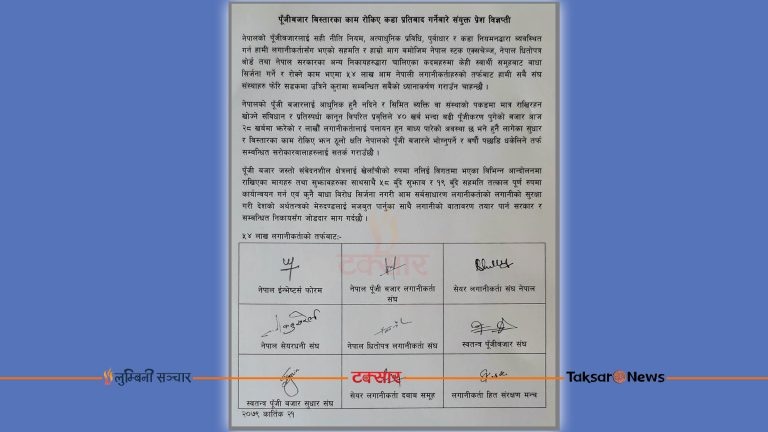 पूँजीबजार बिस्तारका काम रोकिए कडा प्रतिबाद गर्नेबारे संयुक्त प्रेश विज्ञप्ती
नेपालको पूँजीबजारलाई सही नीति नियम, अत्याधुनिक प्रविधि, पूर्वाधार र कडा नियमनद्वारा व्यवस्थित
गर्न हामी लगानीकर्तासँग भएको सहमति र हाम्रो माग बमोजिम नेपाल स्टक एक्सचेञ्ज, नेपाल धितोपत्र
वोर्ड तथा नेपाल सरकारका अन्य निकायहरुद्वारा चालिएका कदमहरुमा केही स्वार्थी समूहबाट बाधा
सिर्जना गर्ने र रोक्ने काम भएमा ५४ लाख आम नेपाली लगानीकर्ताहरुको तर्फबाट हामी सबै संघ
संस्थाहरु फेरि सडकमा उत्रिने कुरामा सम्बन्धित सबैको ध्यानाकर्षण गराउँन चाहन्छौ ।
नेपालको पूँजी बजारलाई आधुनिक हुनै नदिने र सिमित ब्यक्ति वा संस्थाको पकडमा मात्र राखिरहन
खोज्ने संबिधान र प्रतिस्पर्धा कानून विपरित प्रवृत्तिले ४० खर्ब भन्दा बढी पूँजीकरण पुगेको बजार आज
२८ खर्बमा झरेको र लाखौं लगानीकर्तालाई पलायन हुन बाध्य पारेको अवस्था छ भने हुनै लागेका सुधार
र बिस्तारका काम रोकिए झन ठूलो क्षति नेपालको पूँजी बजारले भोग्नुपर्ने र बर्षौ पछाडि धकेलिने तर्फ
सम्बन्धित सरोकारवालाहरुलाई सतर्क गराउँछौ ।
पूँजी बजार जस्तो संबेदनशील क्षेत्रलाई खेलाँचीको रुपमा नलिई विगतमा भएका विभिन्न आन्दोलनमा
राखिएका मागहरु तथा सुझावहरुका साथसाथै ५८ बुँदे सुझाव र १९ बुँदे सहमति तत्काल पूर्ण रुपमा
कार्यान्वयन गर्न एवं कुनै बाधा विरोध सिर्जना नगरी आम सर्वसाधारण लगानीकर्ताको लगानीको सुरक्षा
गरी देशको अर्थतन्त्रको मेरुदण्डलाई मजबुत पार्नुका साथै लगानीको वातावरण तयार पार्न सरकार र
सम्बन्धित निकायसँग जोडदार माग गर्दछौं ।
५४ लाख लगानीकर्ताको तर्फबाट:-
टक्सार
नेपाल ईन्भेष्टर्स फोरम
नेपाल पूँजी बजार लगानीकर्ता संघ
सेयर लगानीकर्ता संघ नेपाल
नेपाल सेयरधनी संघ
नेपाल धितोपत्र लगानीकर्ता संघ
स्वतन्त्र पूँजीबजार संघ
लुम्बिनी सञ्चार
टक्सार
Taksar News
स्वतन्त्र पूँजी बजार सुधार संघ
सेयर लगानीकर्ता दवाब समूह
लगानीकर्ता हित संरक्षण मन्च
२०७९ कार्तिक २१